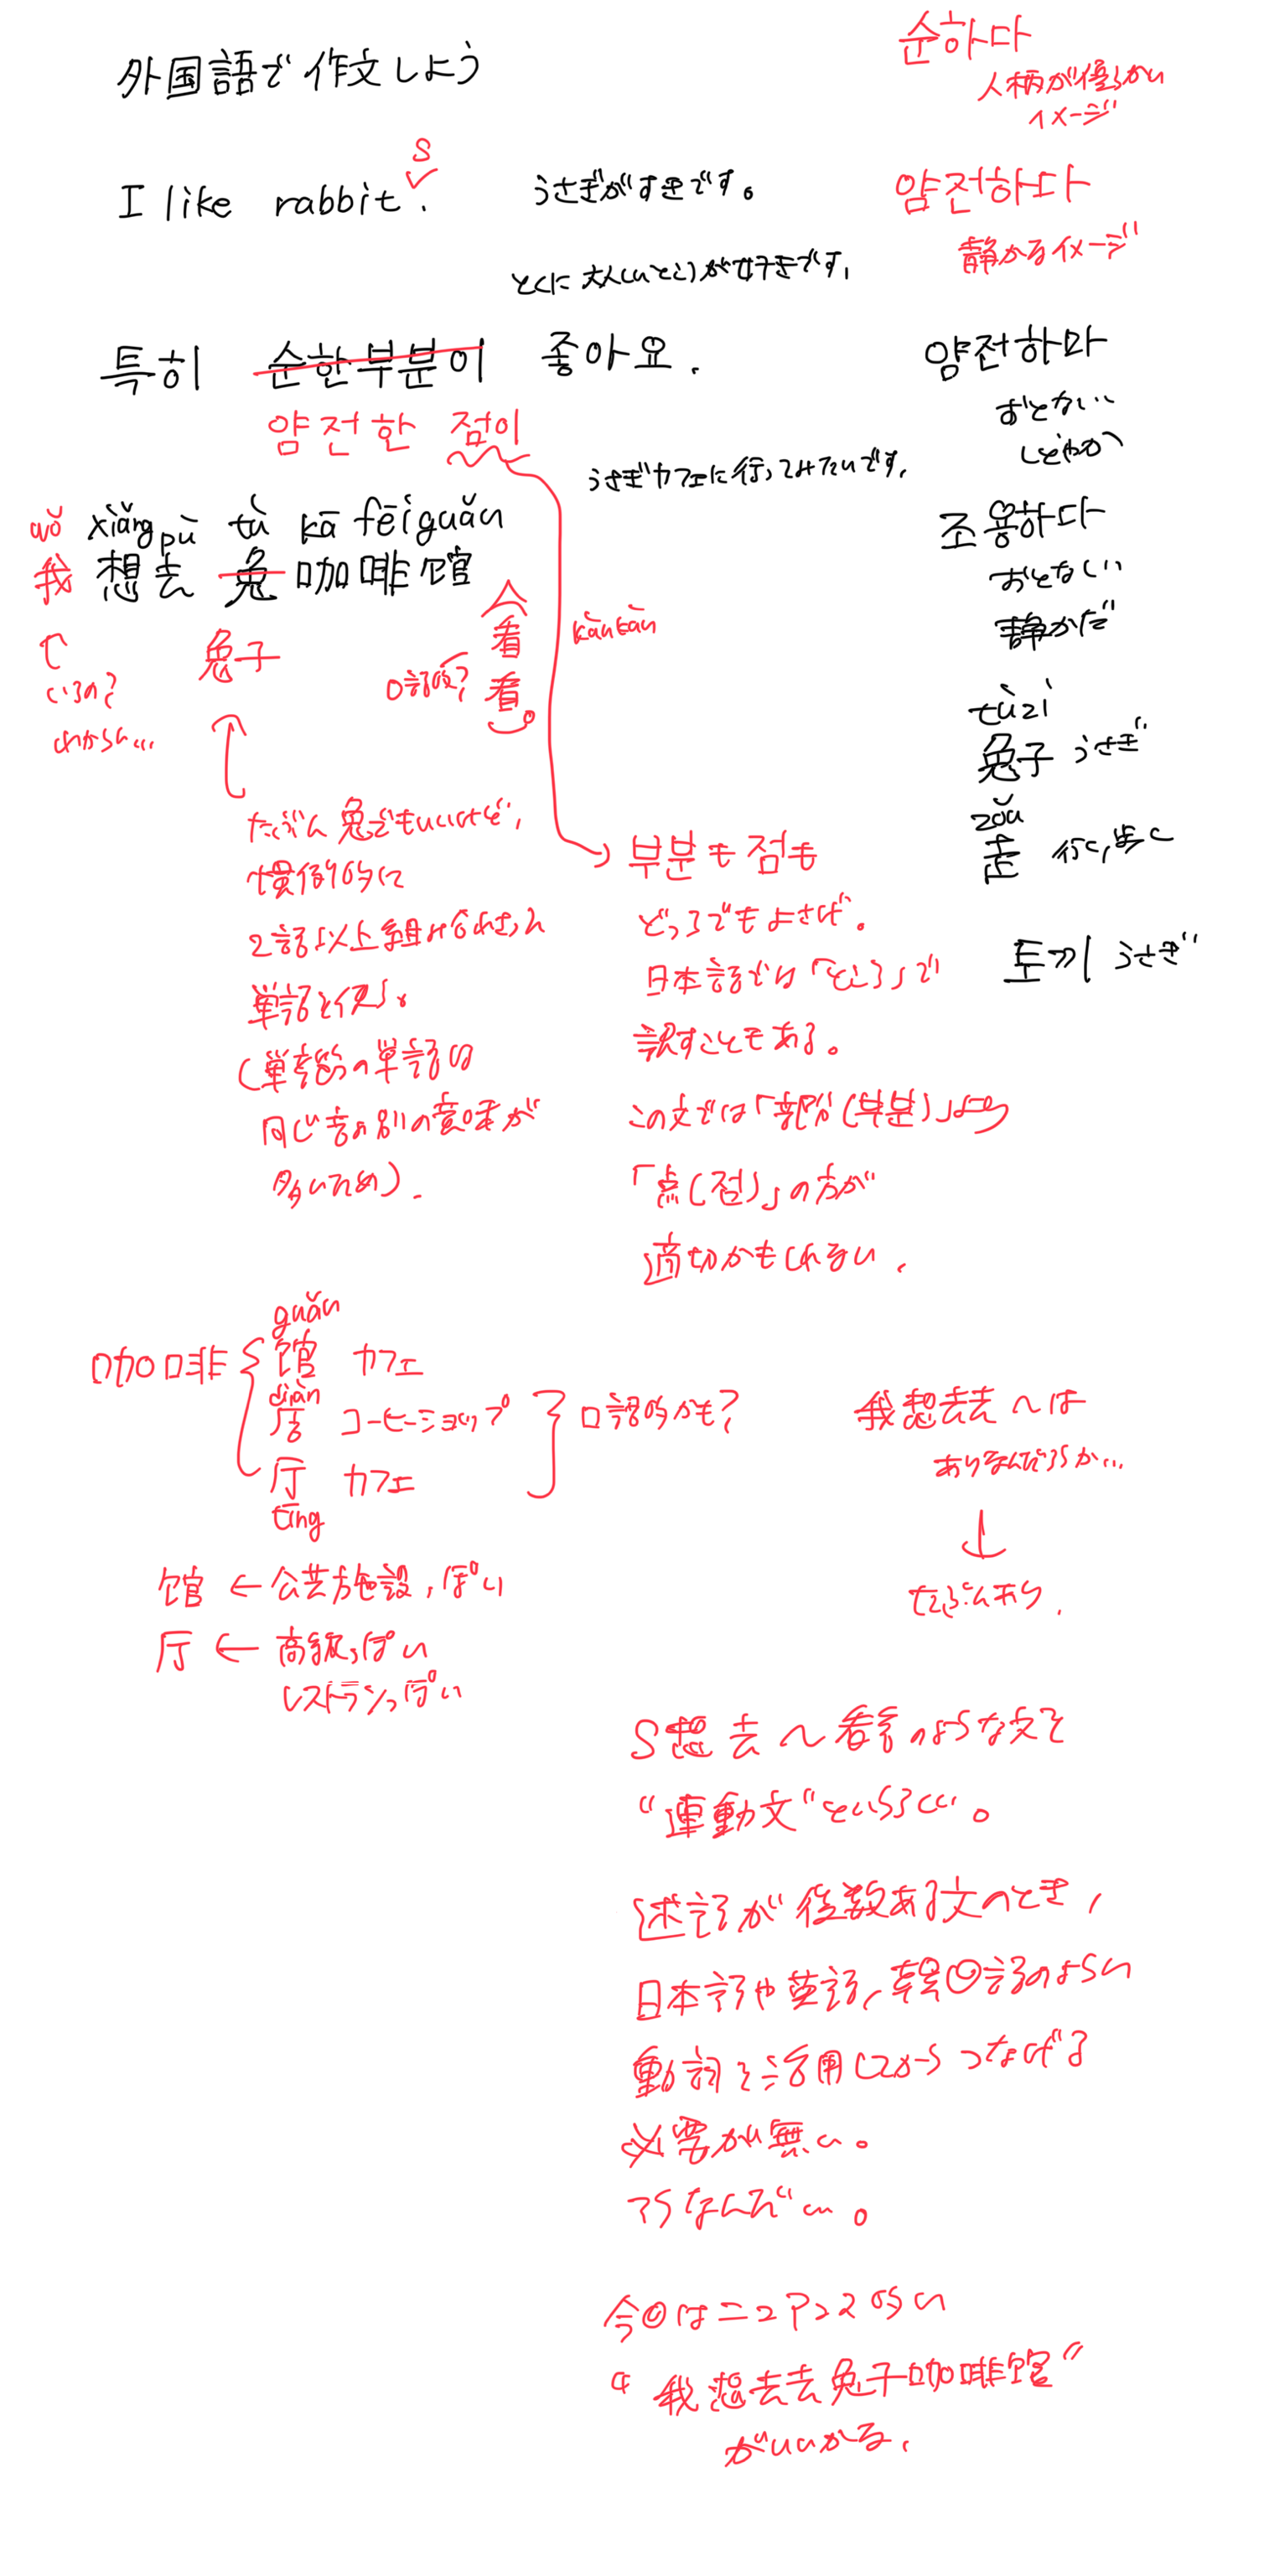 外国語で作文しよう
I like rabbit.
s
うさぎがすきです。
とくに大人しいところが好きです。
特히 순한부분이 좋아요.
얌전한 점이
うさぎカフェに行ってみたいです。
wǒ xiǎng pù tù kā fēi guǎn
我想去兔咖啡馆
兔子
看看。
kànkàn
口語的?
いるの?
わからん…
たぶん兔でもいいけど,
慣例的に
2語以上組み合わさった
単語を使う。
(単音節の単語は
同じ音の別の意味が
多いため).
부분も점も
どっちでもよさげ。
日本語では「ところ」で
訳すこともある。
この文では「部分(부분)」より
「点(점)」の方が
適切かもしれない.
순하다
人柄が優しい
イメージ
얌전하다
静かなイメージ
얌전하다
おとない
しとやか
조용하다
おとなしい
静かだ
tùzi
兔子 うさぎ
zǒu
走 行く,歩く
토끼 うさぎ
咖啡
guǎn
馆 カフェ
diàn
店 コーヒーショップ
厅 カフェ
tīng
口語的かも?
馆 ← 公共施設っぽい
厅 ← 高級っぽい
レストランっぽい
我想去去〜は
ありなんだろうか…
↓
たぶんあり.
S想去〜看看のような文を
“連動文”というらしい。
述語が複数ある文のとき,
日本語や英語,韓国語のように
動詞を活用してからつなげる
必要が無い。
そうなんだ〜。
今回はニュアンス的に
“我想去去兔子咖啡馆”
がいいかな.